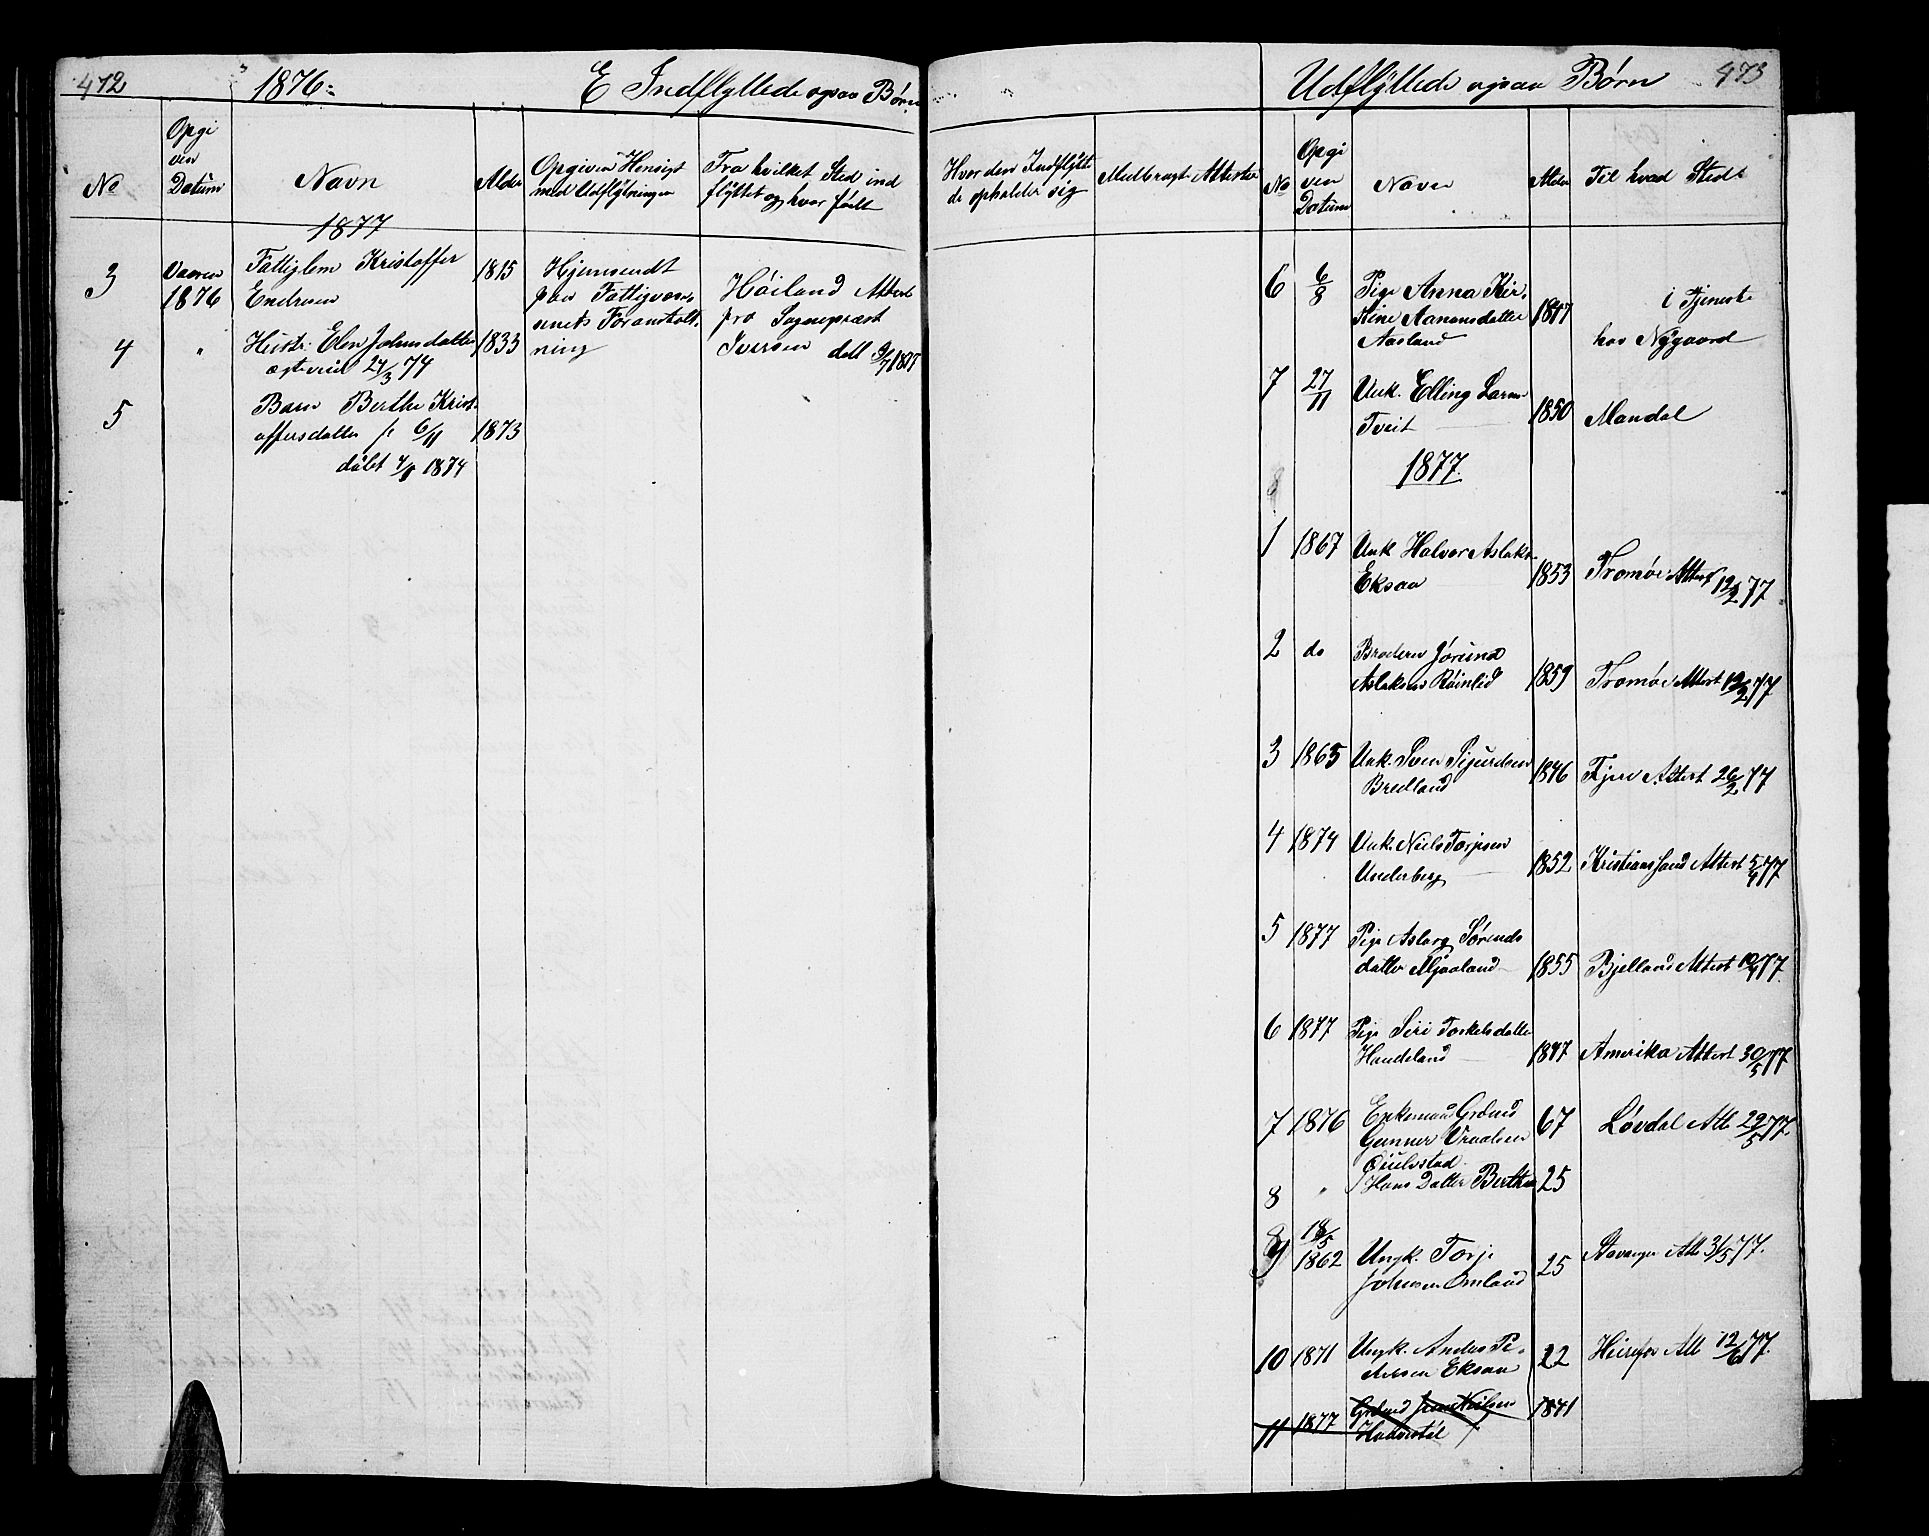 472
1876:
E Indflyttede ogsaa Børn
No
Opgi
ven
Datum
Navn
Alder
Opgiven Hensigt
med Udflytningen
Fra hvilket Sted ind
flyttet og hvor født
1877
3
Vaaren
1876
Fattiglem Kristoffer
Endresen
1815
Hjemsendt
paa Fattigvæse
nets Foranstalt
ning
Høiland Attest
fra Sogneprest
Iversen dat 9/7 1877
4
"
Hustr. Elen Johnsdatter
ægteviet 24/3 74
1833
5
Barn Berthe Krist
offersdatter f. 6/11
døbt 4/1 1874
1873
Udflyttede ogsaa Børn
473
Hvor den Indflytte
de opholder sig
Medbragt Attester
No
Opgi
ven
Datum
Navn
Alder
Til hvad Sted
6
6/8
Pige Anna Kir
stine Aanensdatter
Aasland
1847
i Tjeneste
hos Nygaard
7
27/11
Unk. Elling Larsen
Tveit
1850
Mandal
1877.
1
1867
Unk Halvor Aslaks
Eksaa
1853
Tromøe Attest 12/2 77
2
do
Broderen Jørund
Aslaksen Røinlid
1859
Tromøe Attest 12/2 77
3
1865
Unk. Sven Sigurdsen
Bredland
1846
Fjære Attest 26/2 77
4
1874
Unk. Niels Torjesen
Underberg
1852
Kristianssand Attest 5/4 77
5
1877
Pige Aslaug Sørends
datter Mjaaland
1855
Bjelland Attest 10/4 77.
6
1877
Pige Siri Torkelsdatter
Haudeland
1847
Amerika Attest 30/5 77
7
1876
Enkemand Grdmd
Gunner Vraalsen
Øiulvstad
67
Løvdal Att 29/5 77.
8
"
Hans Datter Berthe
25
9
18/5
1862
Ungk. Torje
Johnsen Omland
25
Stavanger Att 31/5 77.
10
1871
Ungk. Anders Pe
dersen Eksaa
22
Heirefos Att 12/6 77.
11
1877
Grdmd Jens Nilsen
Haaverstøl
1841